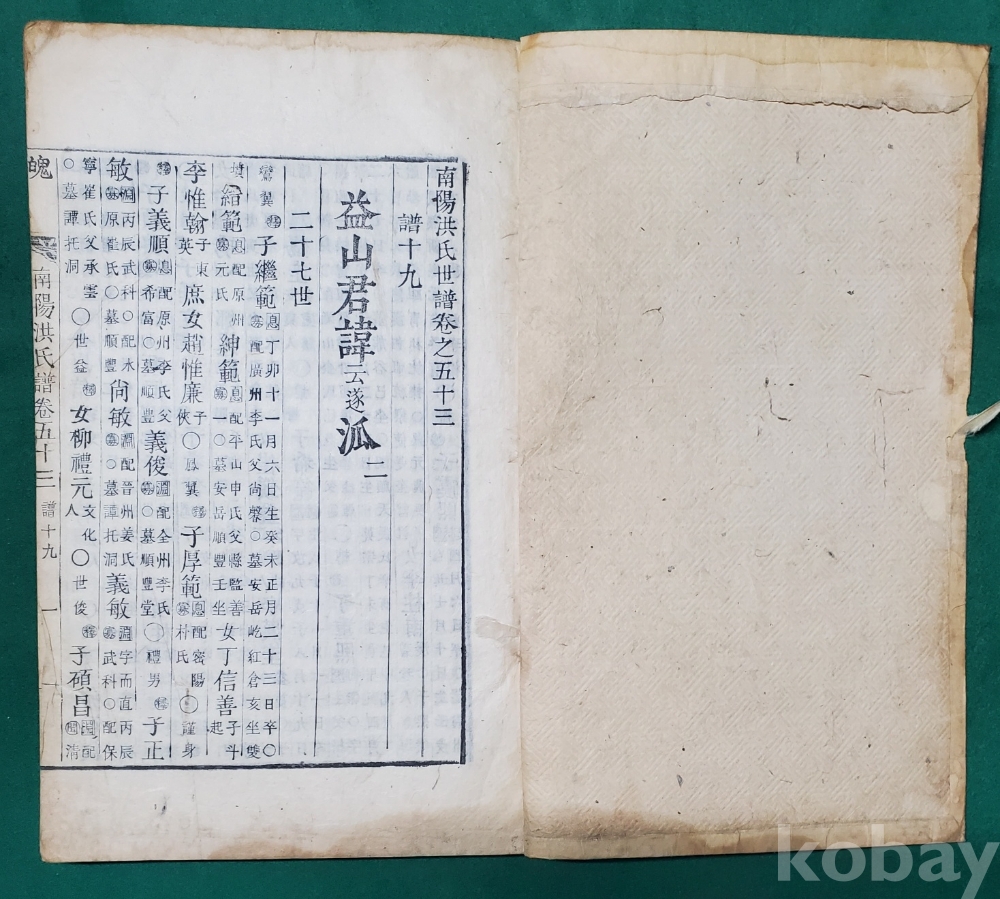 南陽洪氏世譜卷之五十三
譜十九
益山君諱云遂派二
二十七世
鸞翼 子繼範 丁卯十一月六日生癸未正月二十三日卒○
配廣州李氏父尚馨○墓安岳屹紅倉亥坐雙
墳 紿範 配原州元氏 紳範 配平山申氏父縣監善一○墓安岳順豐壬坐 女丁信善 子斗起
李惟翰 子東英 庶女趙惟廉 子俠 ○ 翼 子厚範 配密陽朴氏 ○謹身
子義順 配原州李氏父希富○墓順豐 義俊 配全州李氏○墓順豐堂 ○禮男 子正
敏 丙辰武科○配水原崔氏○墓順豐 尙敏 配晉州姜氏○墓譚托洞 義敏 字而直丙辰武科○配保
寧崔氏父承雲○墓譚托洞 ○世益 女柳禮元 文化人 ○世俊 子碩昌 配清
南陽洪氏譜卷五十三 譜十九 一
kobay